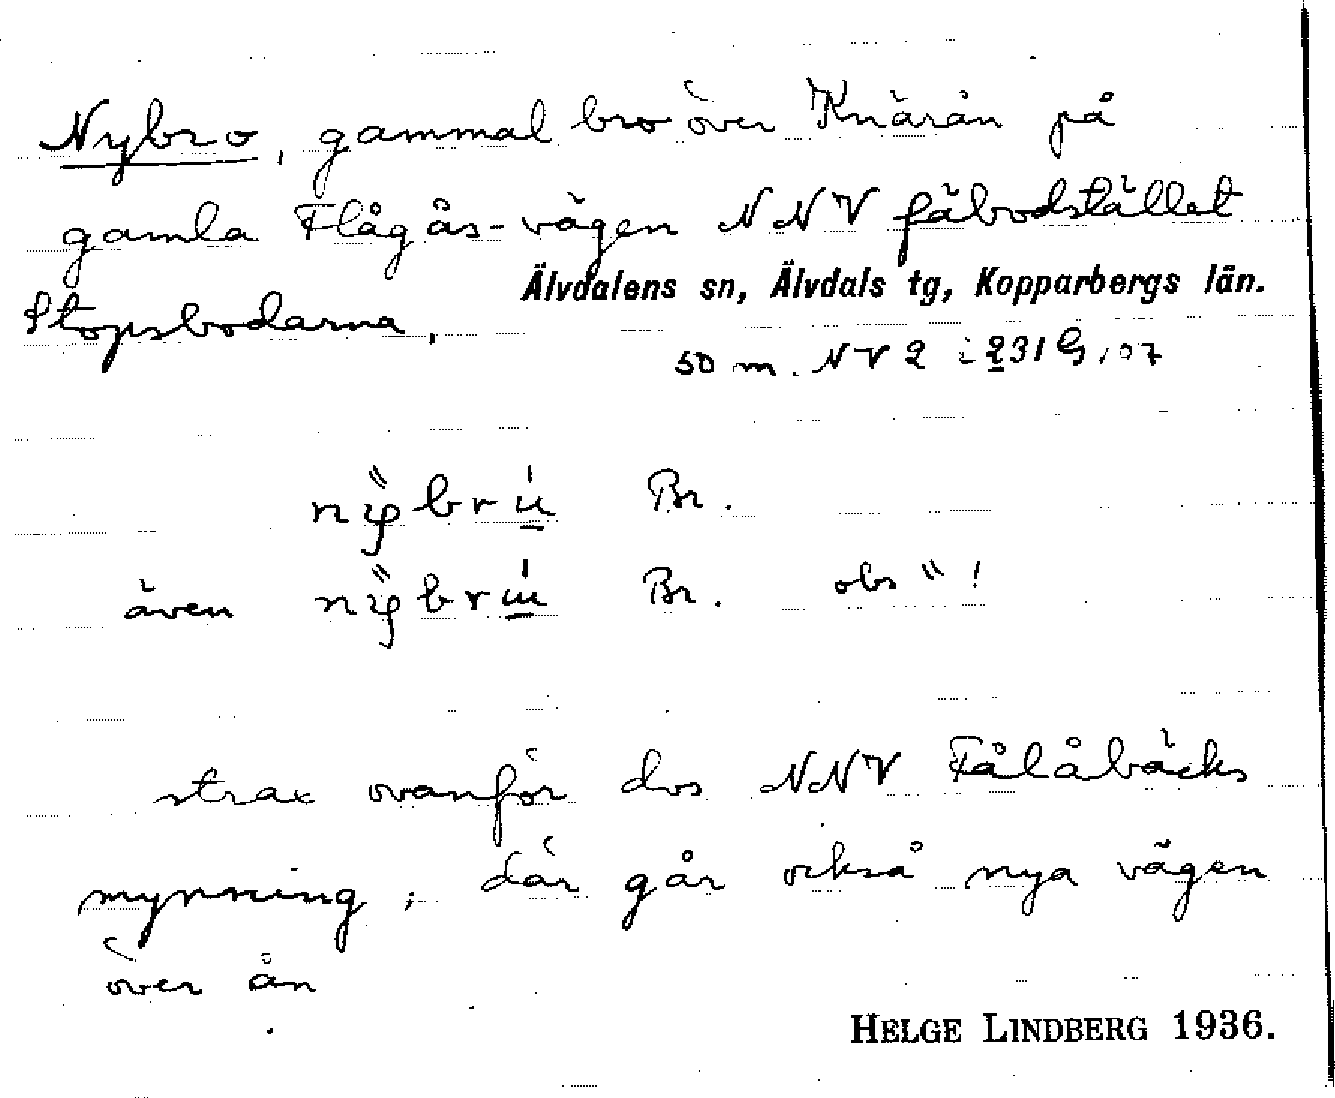 Nybro, gammal bro över Knärån på
gamla Flågås-vägen NNV fäbodstället
Älvdalens sn, Älvdals tg, Kopparbergs län.
Stopsbodarna,
50 m. NV 2 i 231 G, 07
Br.
även Br. obs " !
strax ovanför dvs NNV Fålåbäcks
mynning, där går också nya vägen
över ån
HELGE LINDBERG 1936.